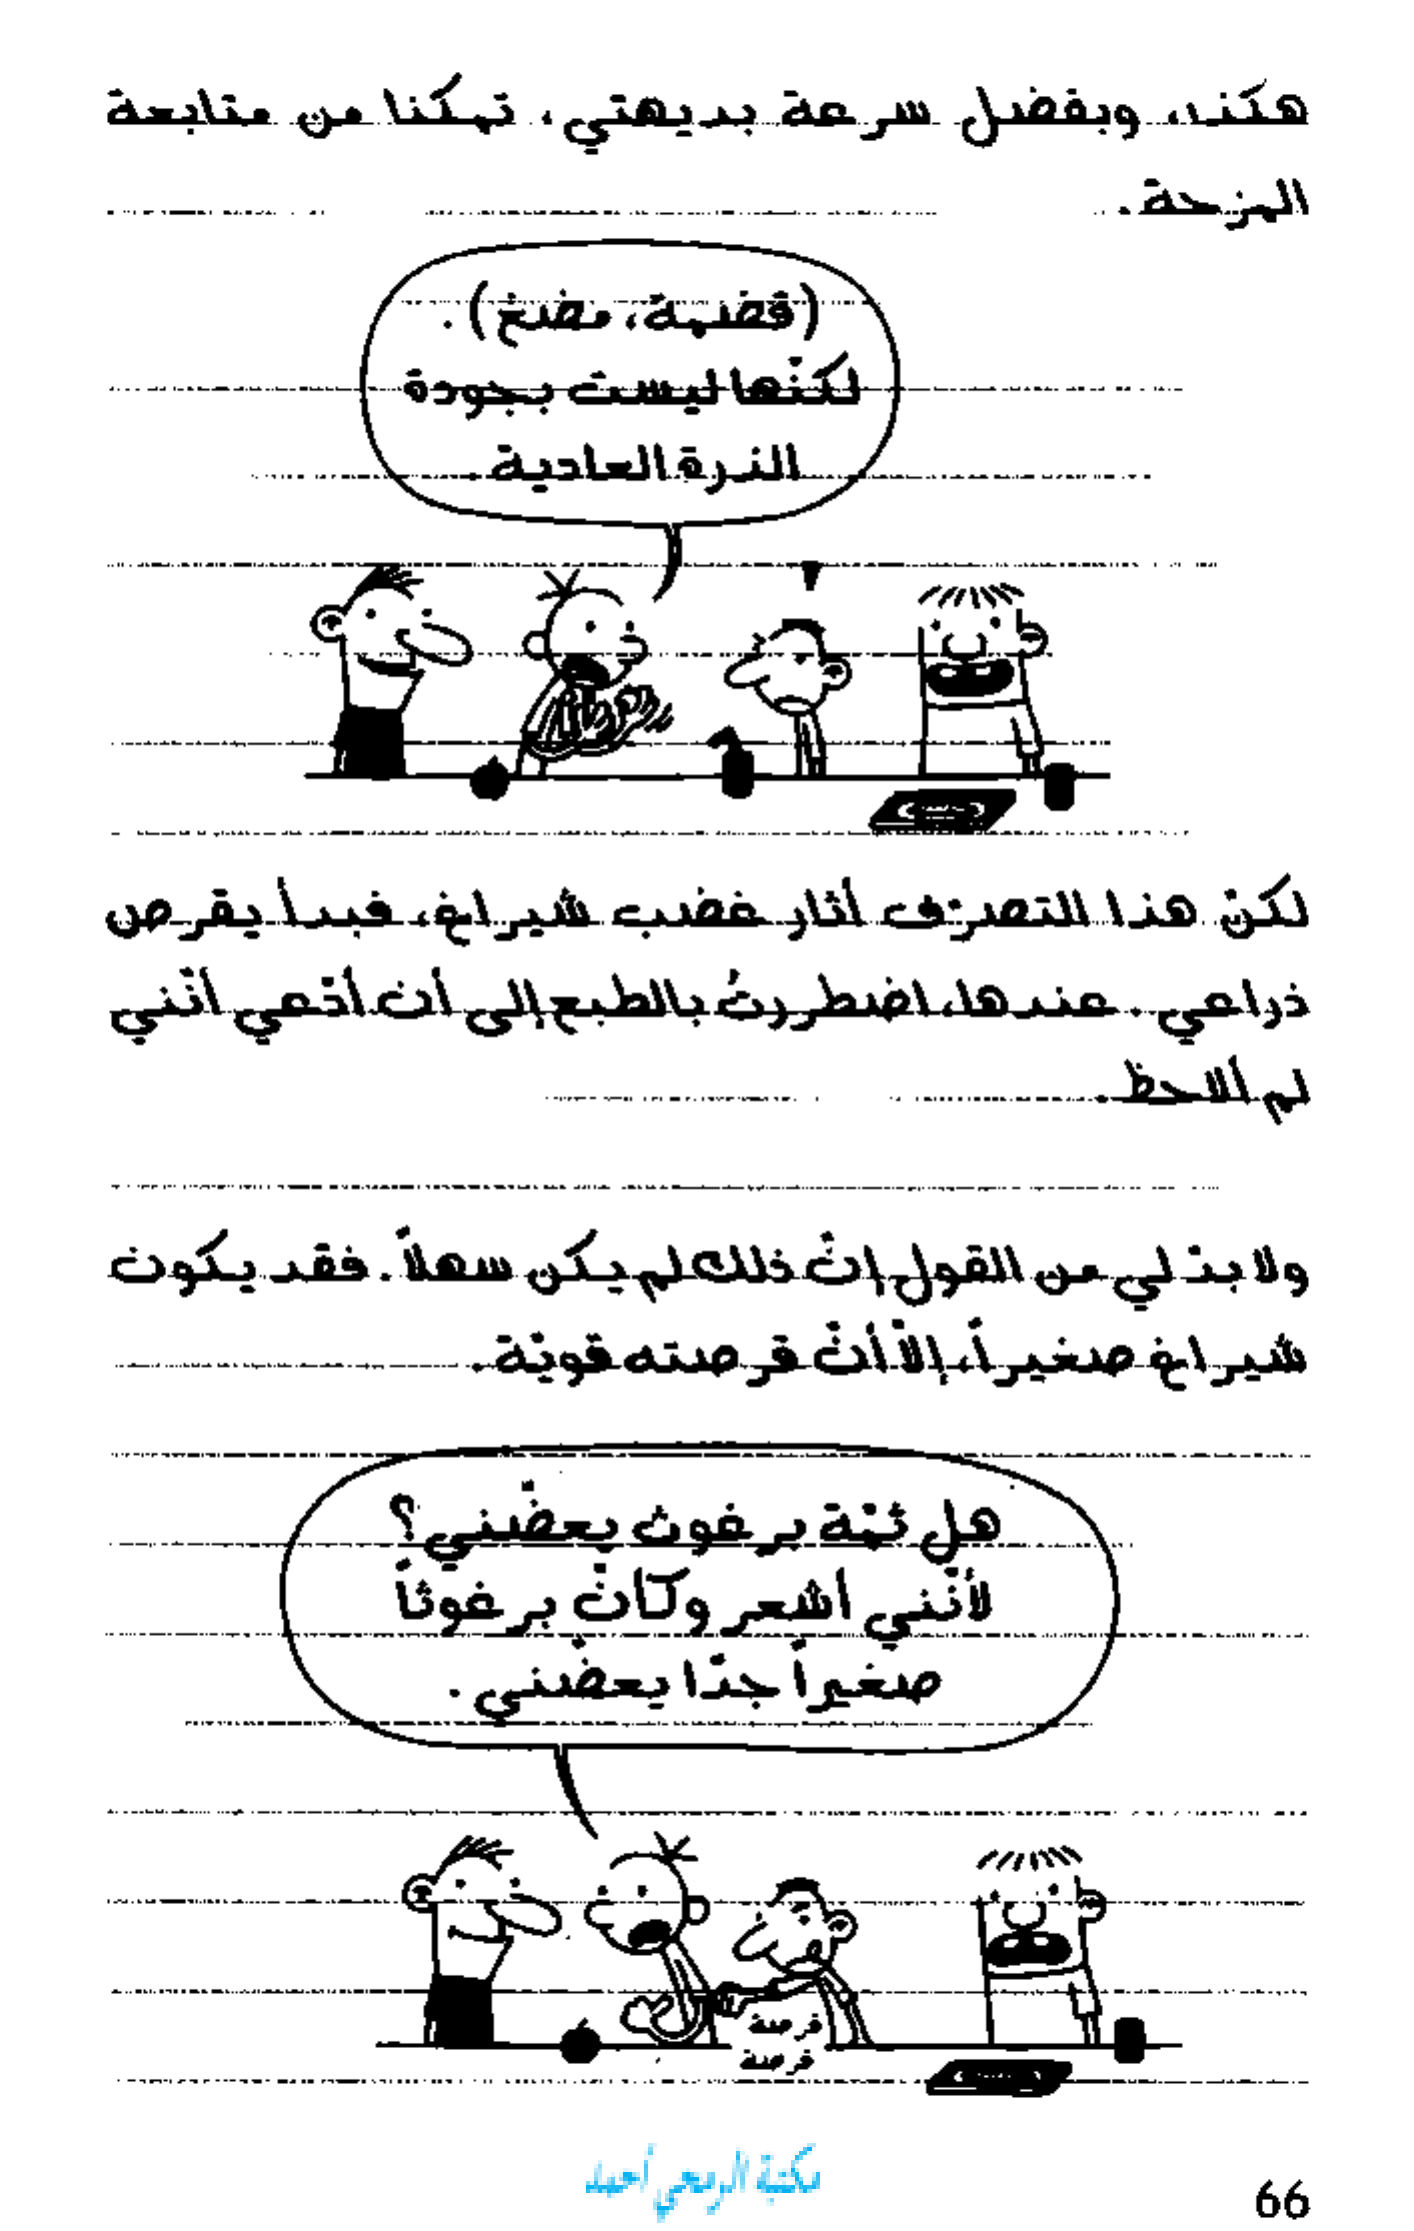 هكذا، وبفضل سرعة بديهتي، تمكنا من متابعة
المزحة.
(قضمة، مضغ).
لكنّها ليست بجودة
الذرة العادية.
لكنّ هذا التصرّف أثار غضب شيراغ، فبدأ يقرص
ذراعي. عندها، اضطررتُ بالطبع إلى أن أدّعي أنّني
لم ألاحظ.
ولا بدّ لي من القول إنّ ذلك لم يكن سهلاً. فقد يكون
شيراغ صغيراً، إلاّ أنّ قرصته قويّة.
هل ثمّة برغوث يعضّني؟
لأنّني أشعر وكأنّ برغوثاً
صغيراً جدّا يعضّني.
قرصة
قرصة
مكتبة الرمحي أحمد
66